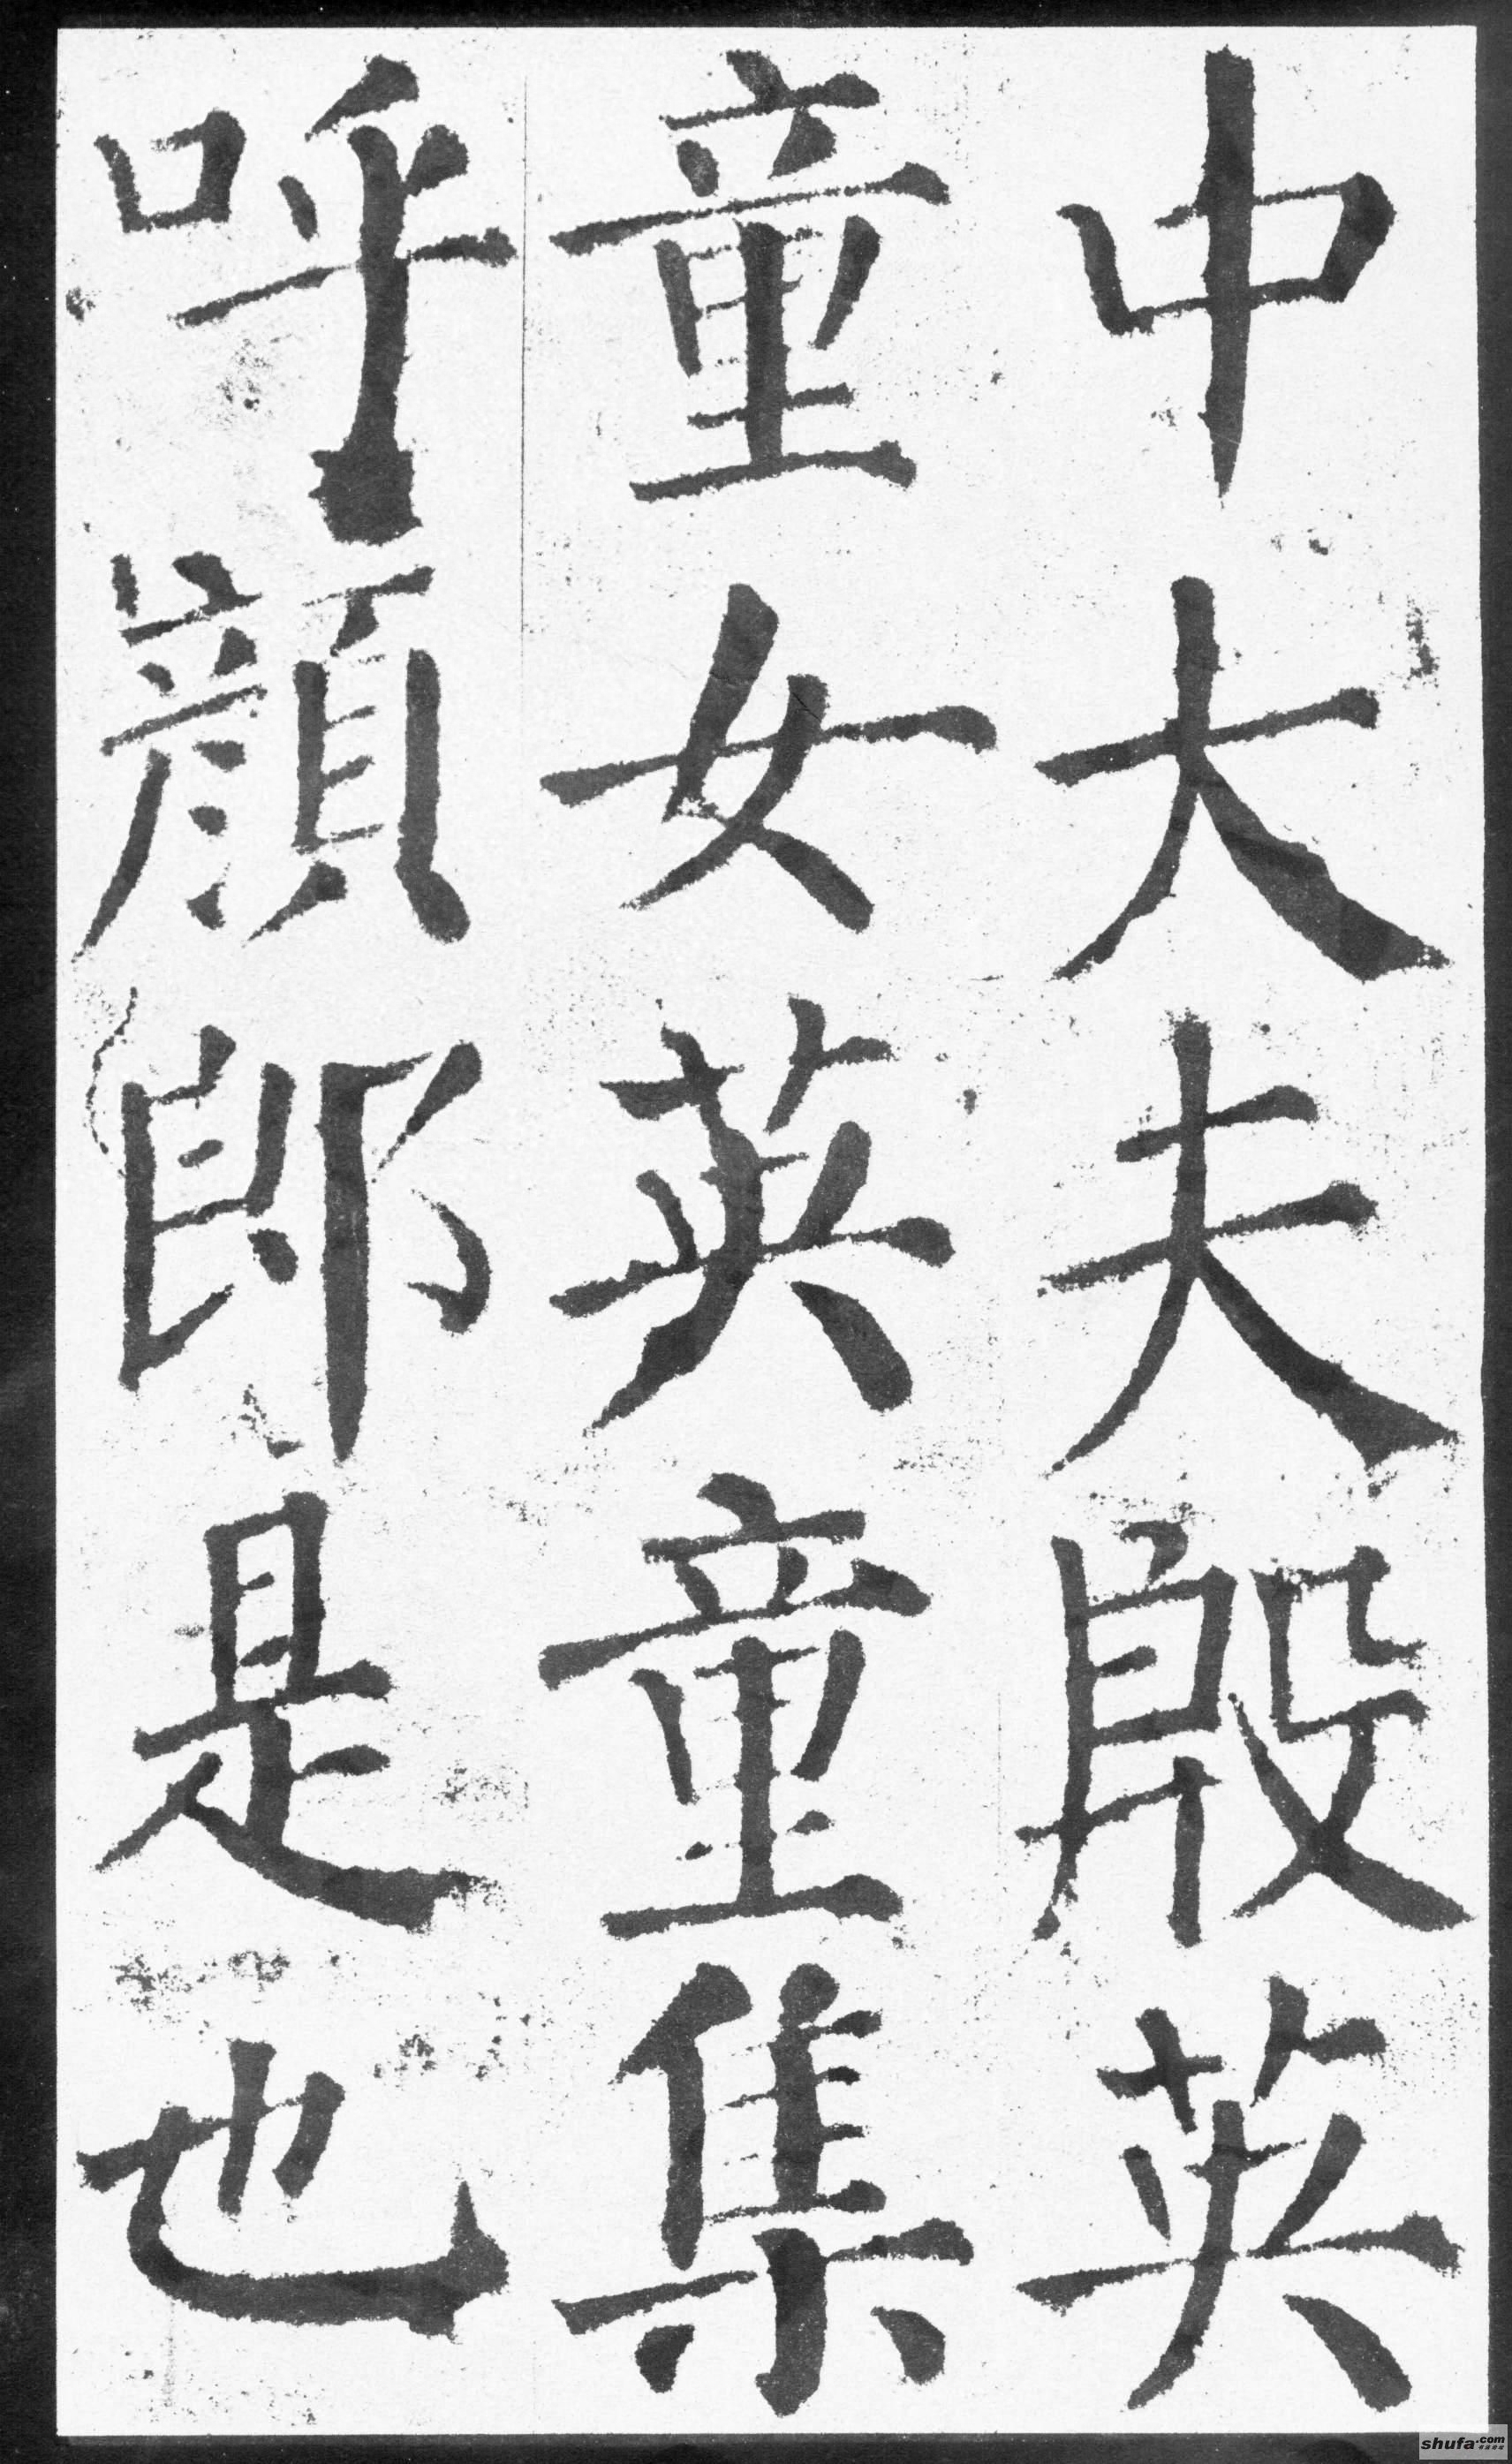 中大夫殷英
童女英童集
呼顏郎是也
shufa.com